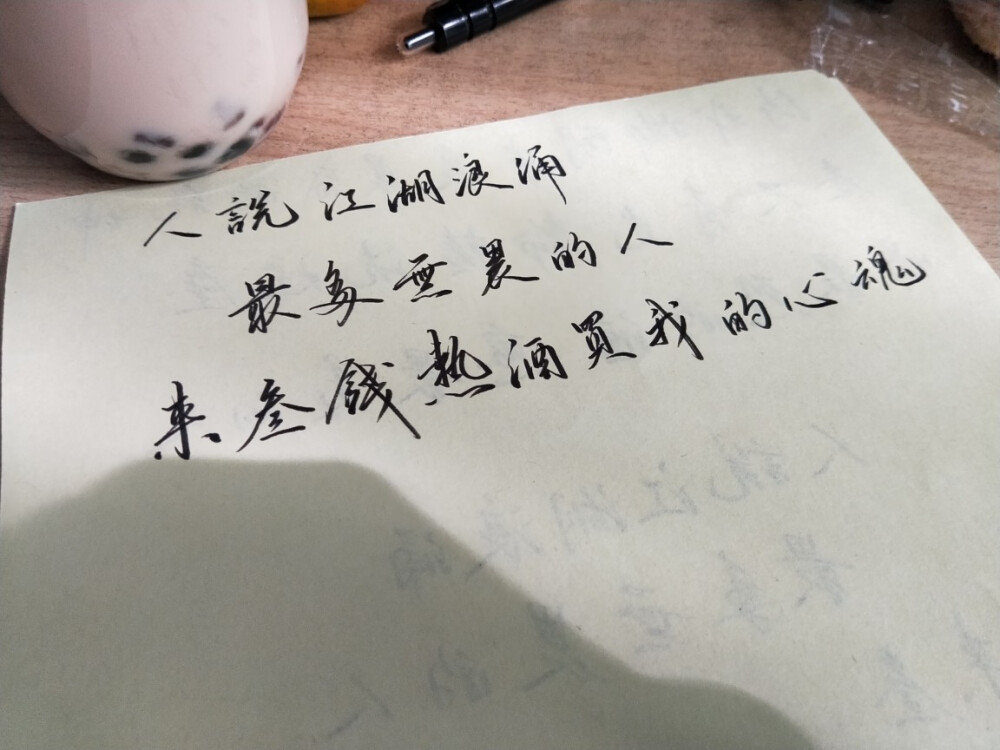 人說江湖浪涌
最多無畏的人
来叁錢熱酒買我的心魂